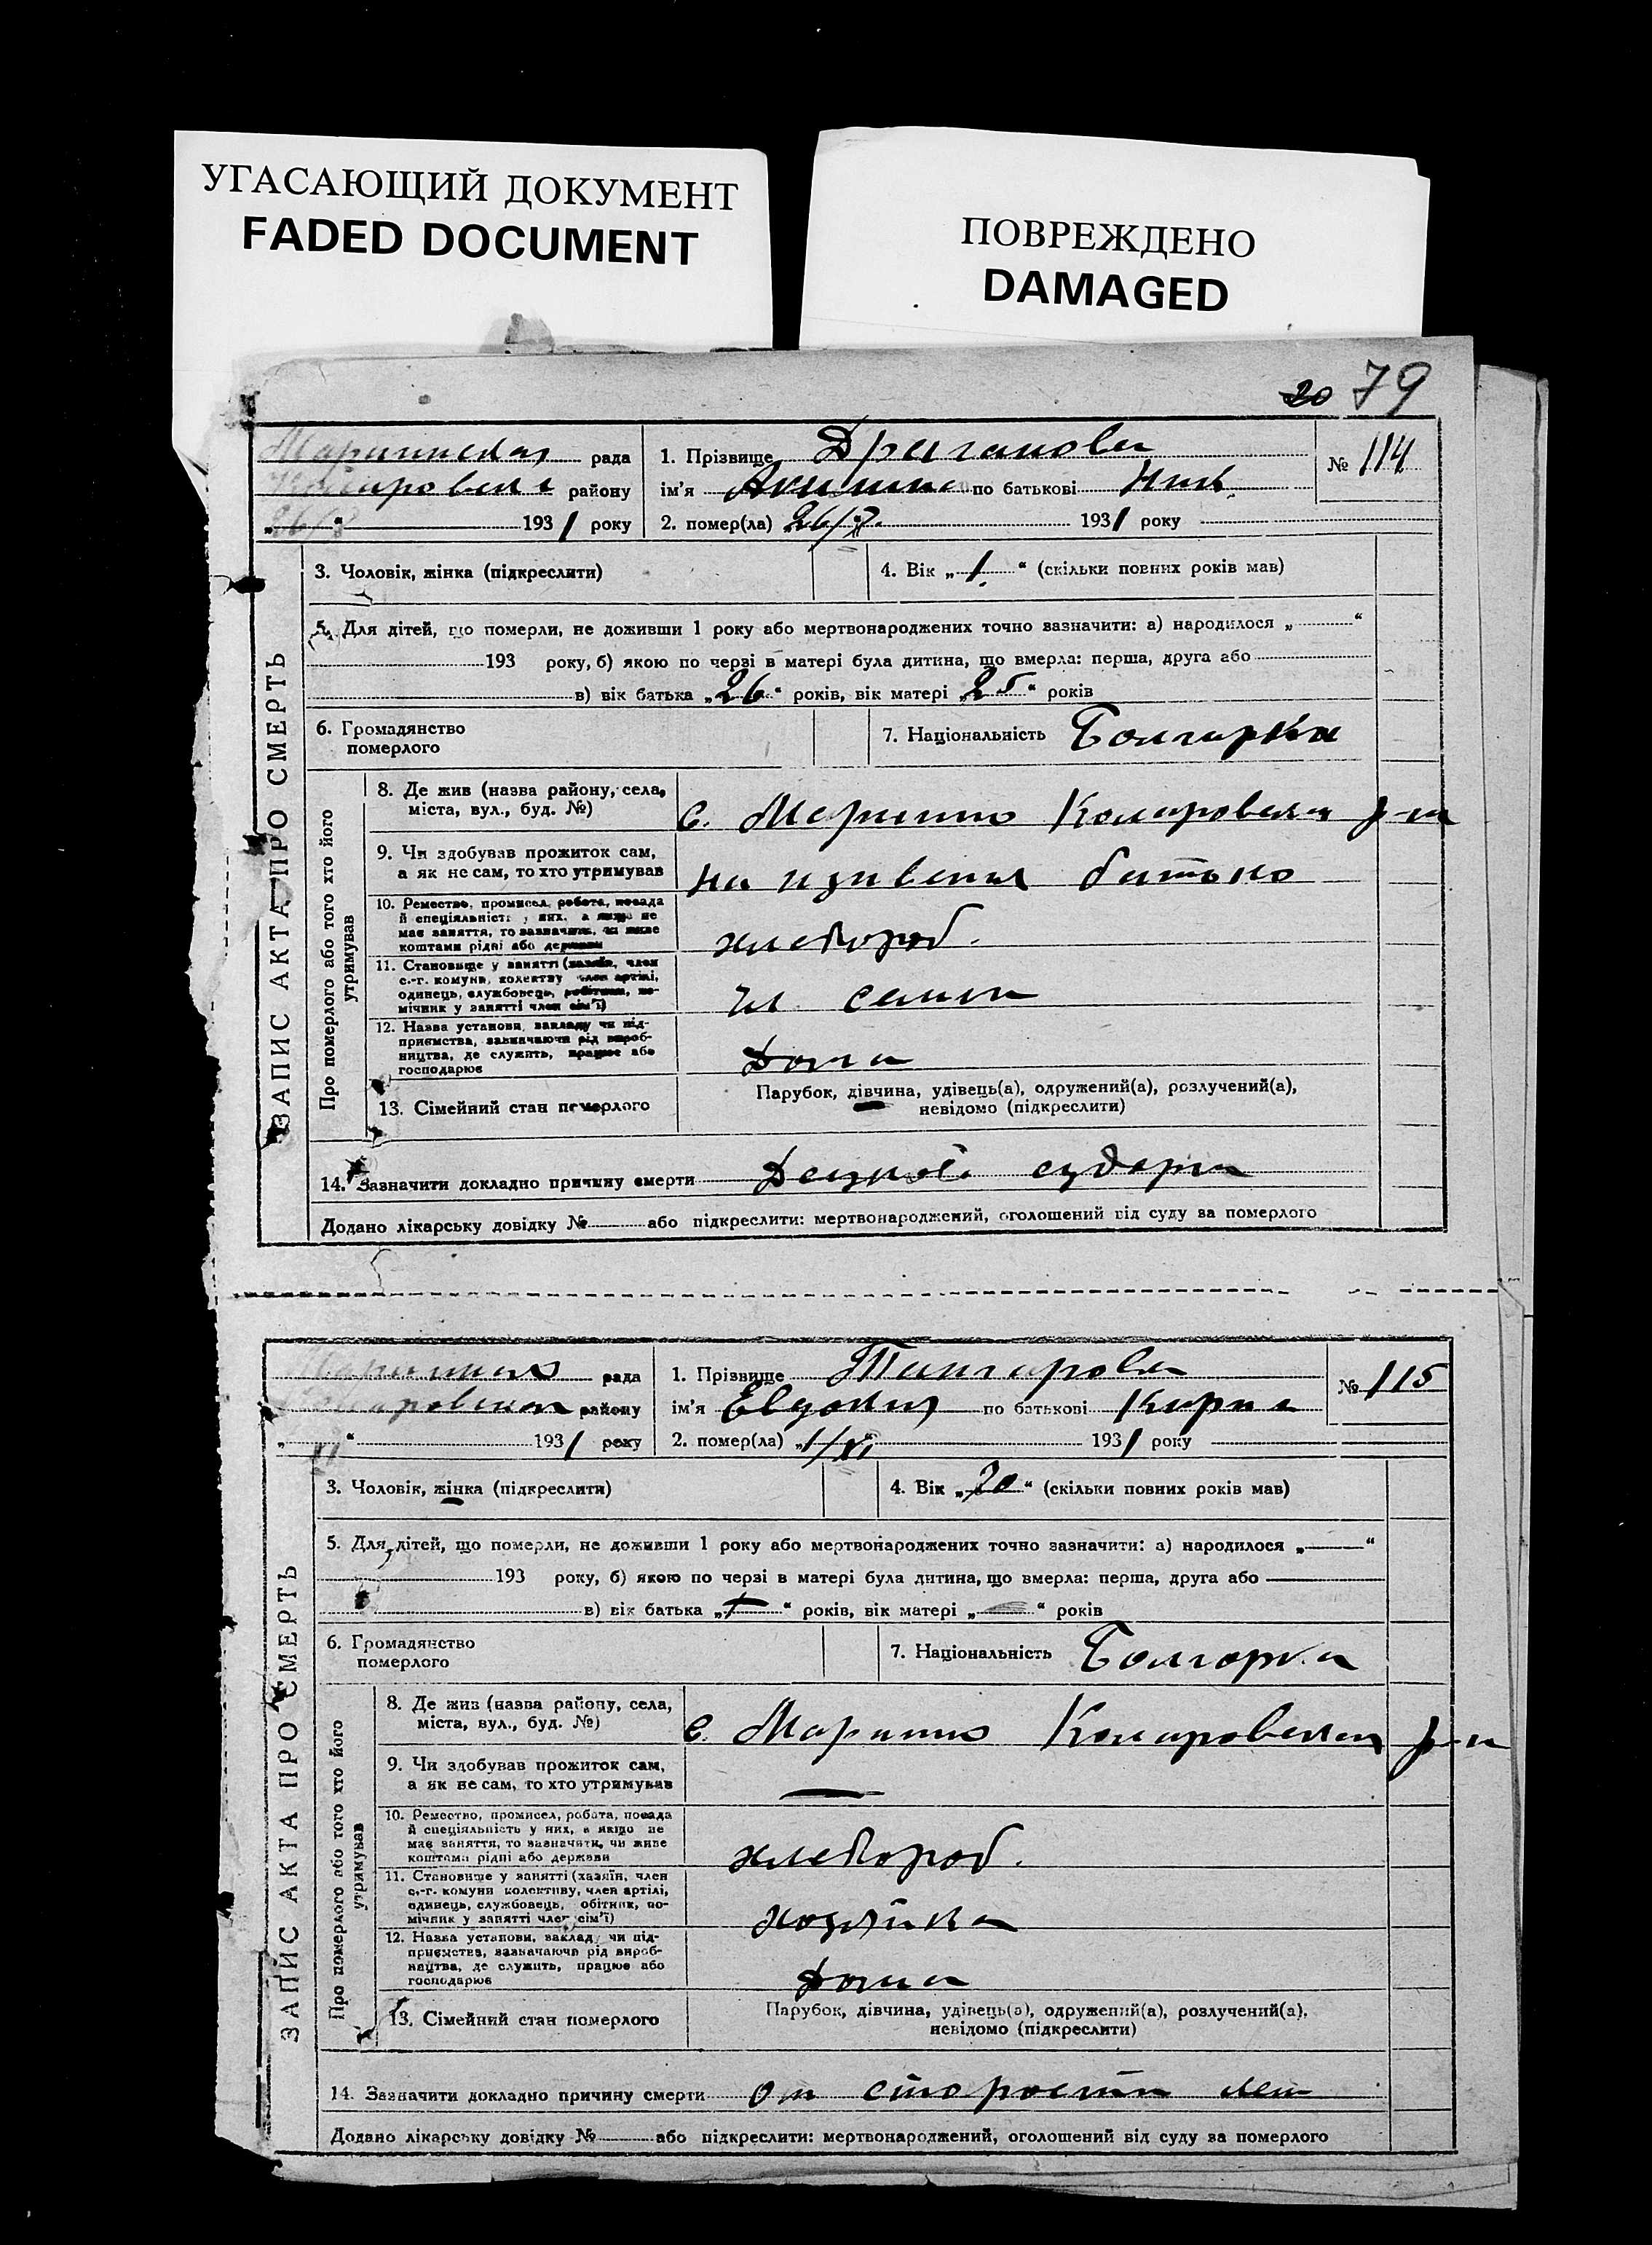 УГАСАЮЩИЙ ДОКУМЕНТ
FADED DOCUMENT
ПОВРЕЖДЕНО
DAMAGED
20 79
рада
району
1931 року
1. Прізвище Драганова
ім'я по батькові
2. помер(ла) 26/X 1931 року
№ 114
ЗАПИС АКТА ПРО СМЕРТЬ
3. Чоловік, жінка (підкреслити)
4. Вік „1“ (скільки повних років мав)
5. Для дітей, що померли, не доживши 1 року або мертвонароджених точно зазначити: а) народилося „ “
193 року, б) якою по черзі в матері була дитина, що вмерла: перша, друга або
в) вік батька „26“ років, вік матері „25“ років
6. Громадянство
померлого
7. Національність Болгарка
Про померлого або того хто його
утримував
8. Де жив (назва району, села,
міста, вул., буд. №)
с. Марино Коларовская р-на
9. Чи здобував прожиток сам,
а як не сам, то хто утримував
10. Ремество, промисел, робота, посада
й спеціяльність у них, а якщо не
має заняття, то зазначити, чи живе
коштами рідні або держави
хлебороб.
11. Становище у занятті (хазяїн, член
с.-г. комуни, колективу, член артілі,
одинець, службовець, робітник, по-
мічник у занятті член сім'ї)
чл семьи
12. Назва установи, закладу чи під-
приємства, зазначаючи рід вироб-
ництва, де служить, працює або
господарює
Дома
13. Сімейний стан померлого
Парубок, дівчина, удівець(а), одружений(а), розлучений(а),
невідомо (підкреслити)
14. Зазначити докладно причину смерти
Додано лікарську довідку № або підкреслити: мертвонароджений, оголошений від суду за померлого
рада
району
1931 року
1. Прізвище
ім'я Евдокия по батькові Кирил
2. помер(ла) „1/XI“ 1931 року
№ 115
ЗАПИС АКТА ПРО СМЕРТЬ
3. Чоловік, жінка (підкреслити)
4. Вік „70“ (скільки повних років мав)
5. Для дітей, що померли, не доживши 1 року або мертвонароджених точно зазначити: а) народилося „ “
193 року, б) якою по черзі в матері була дитина, що вмерла: перша, друга або
в) вік батька „ “ років, вік матері „ “ років
6. Громадянство
померлого
7. Національність Болгарка
Про померлого або того хто його
утримував
8. Де жив (назва району, села,
міста, вул., буд. №)
с. Марино Коларовская р-н
9. Чи здобував прожиток сам,
а як не сам, то хто утримував
—
10. Ремество, промисел, робота, посада
й спеціяльність у них, а якщо не
має заняття, то зазначити, чи живе
коштами рідні або держави
хлебороб.
11. Становище у занятті (хазяїн, член
с.-г. комуни колективу, член артілі,
одинець, службовець, обітник, по-
мічник у занятті член сім'ї)
хозяйка
12. Назва установи, закладу чи під-
приємства, зазначаючи рід вироб-
ництва, де служить, працює або
господарює
Дома
13. Сімейний стан померлого
Парубок, дівчина, удівець(а), одружений(а), розлучений(а),
невідомо (підкреслити)
14. Зазначити докладно причину смерти от старости лет
Додано лікарську довідку № або підкреслити: мертвонароджений, оголошений від суду за померлого